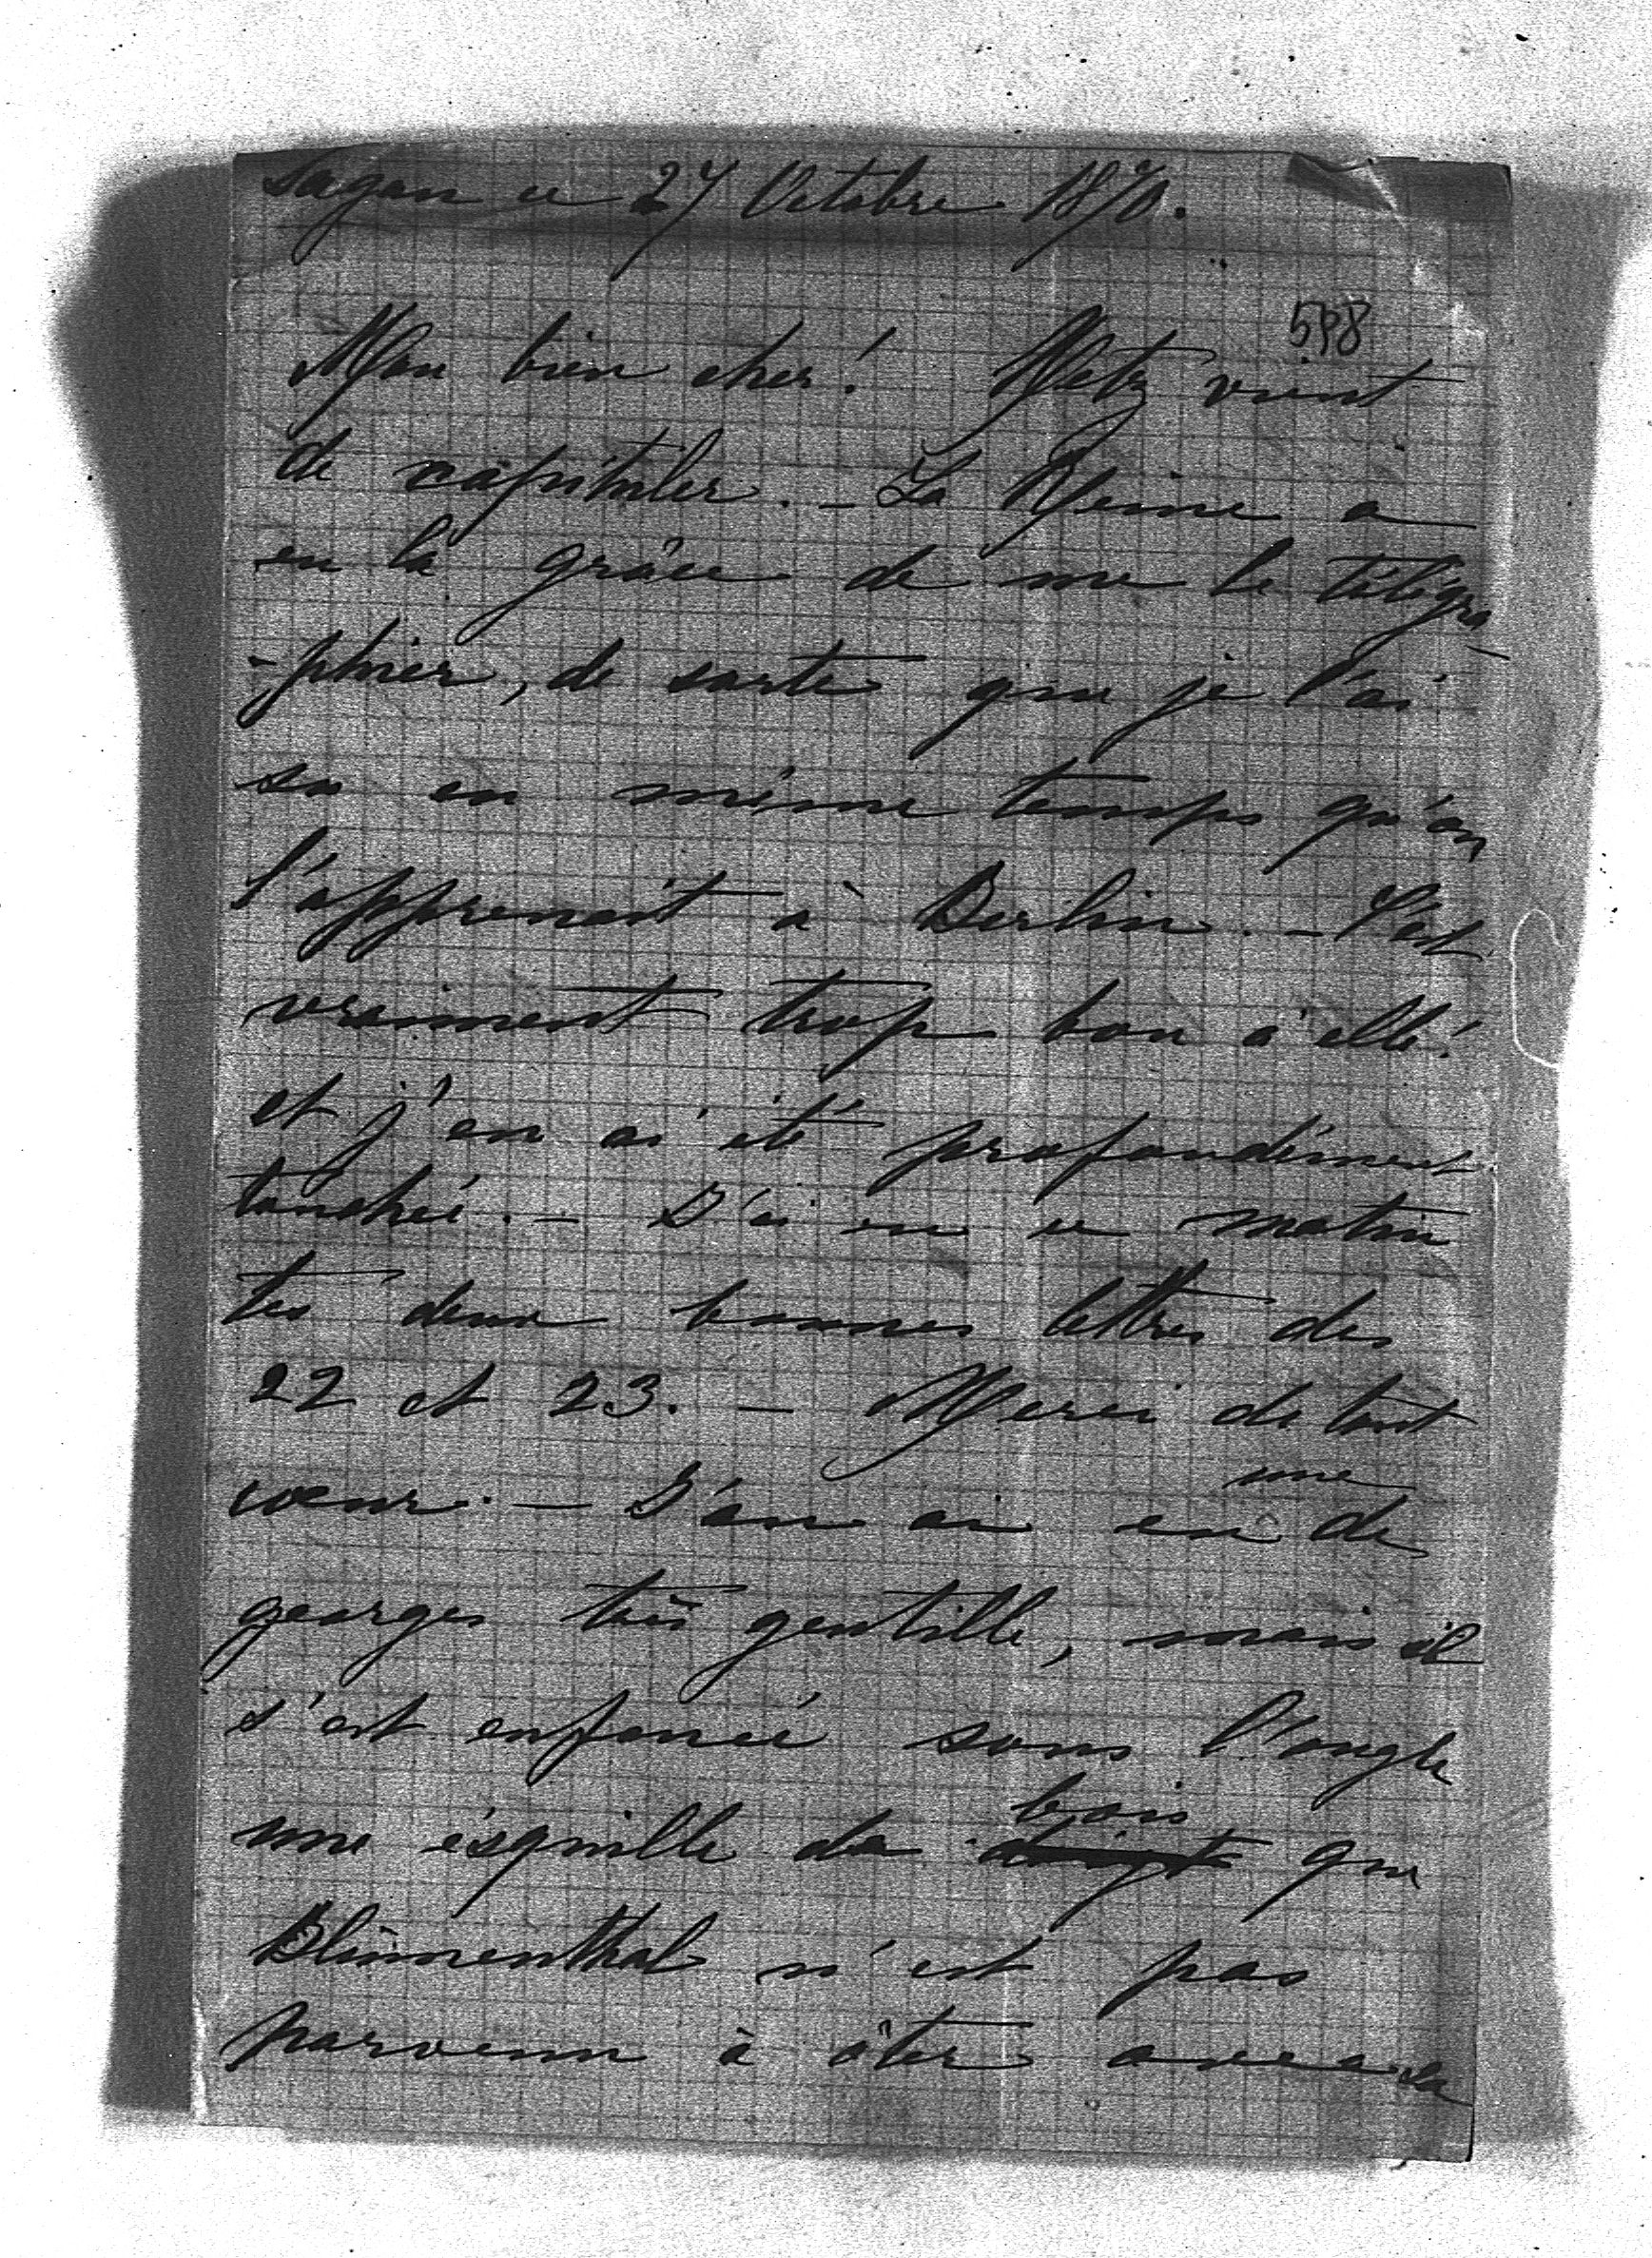 Sagan ce 27 Octobre 1870.
598
Mon bien cher! Metz vient
de capituler. – La Reine a
eu la grâce de me le télégra-
-phier, de sorte que je l'ai
su en même temps qu'on
l'apprenait à Berlin. – C'est
vraiment trop bon à elle!
et j'en ai été profondément
touchée. – J'ai eu ce matin
tes deux bonnes lettres des
22 et 23. – Merci de tout
cœur. – J'en ai eu une de
georges très gentille, mais il
s'est enfoncé sous l'ongle
une ésquille de doigt bois que
Blumenthal n'est pas
parvenu à ôter avec sa